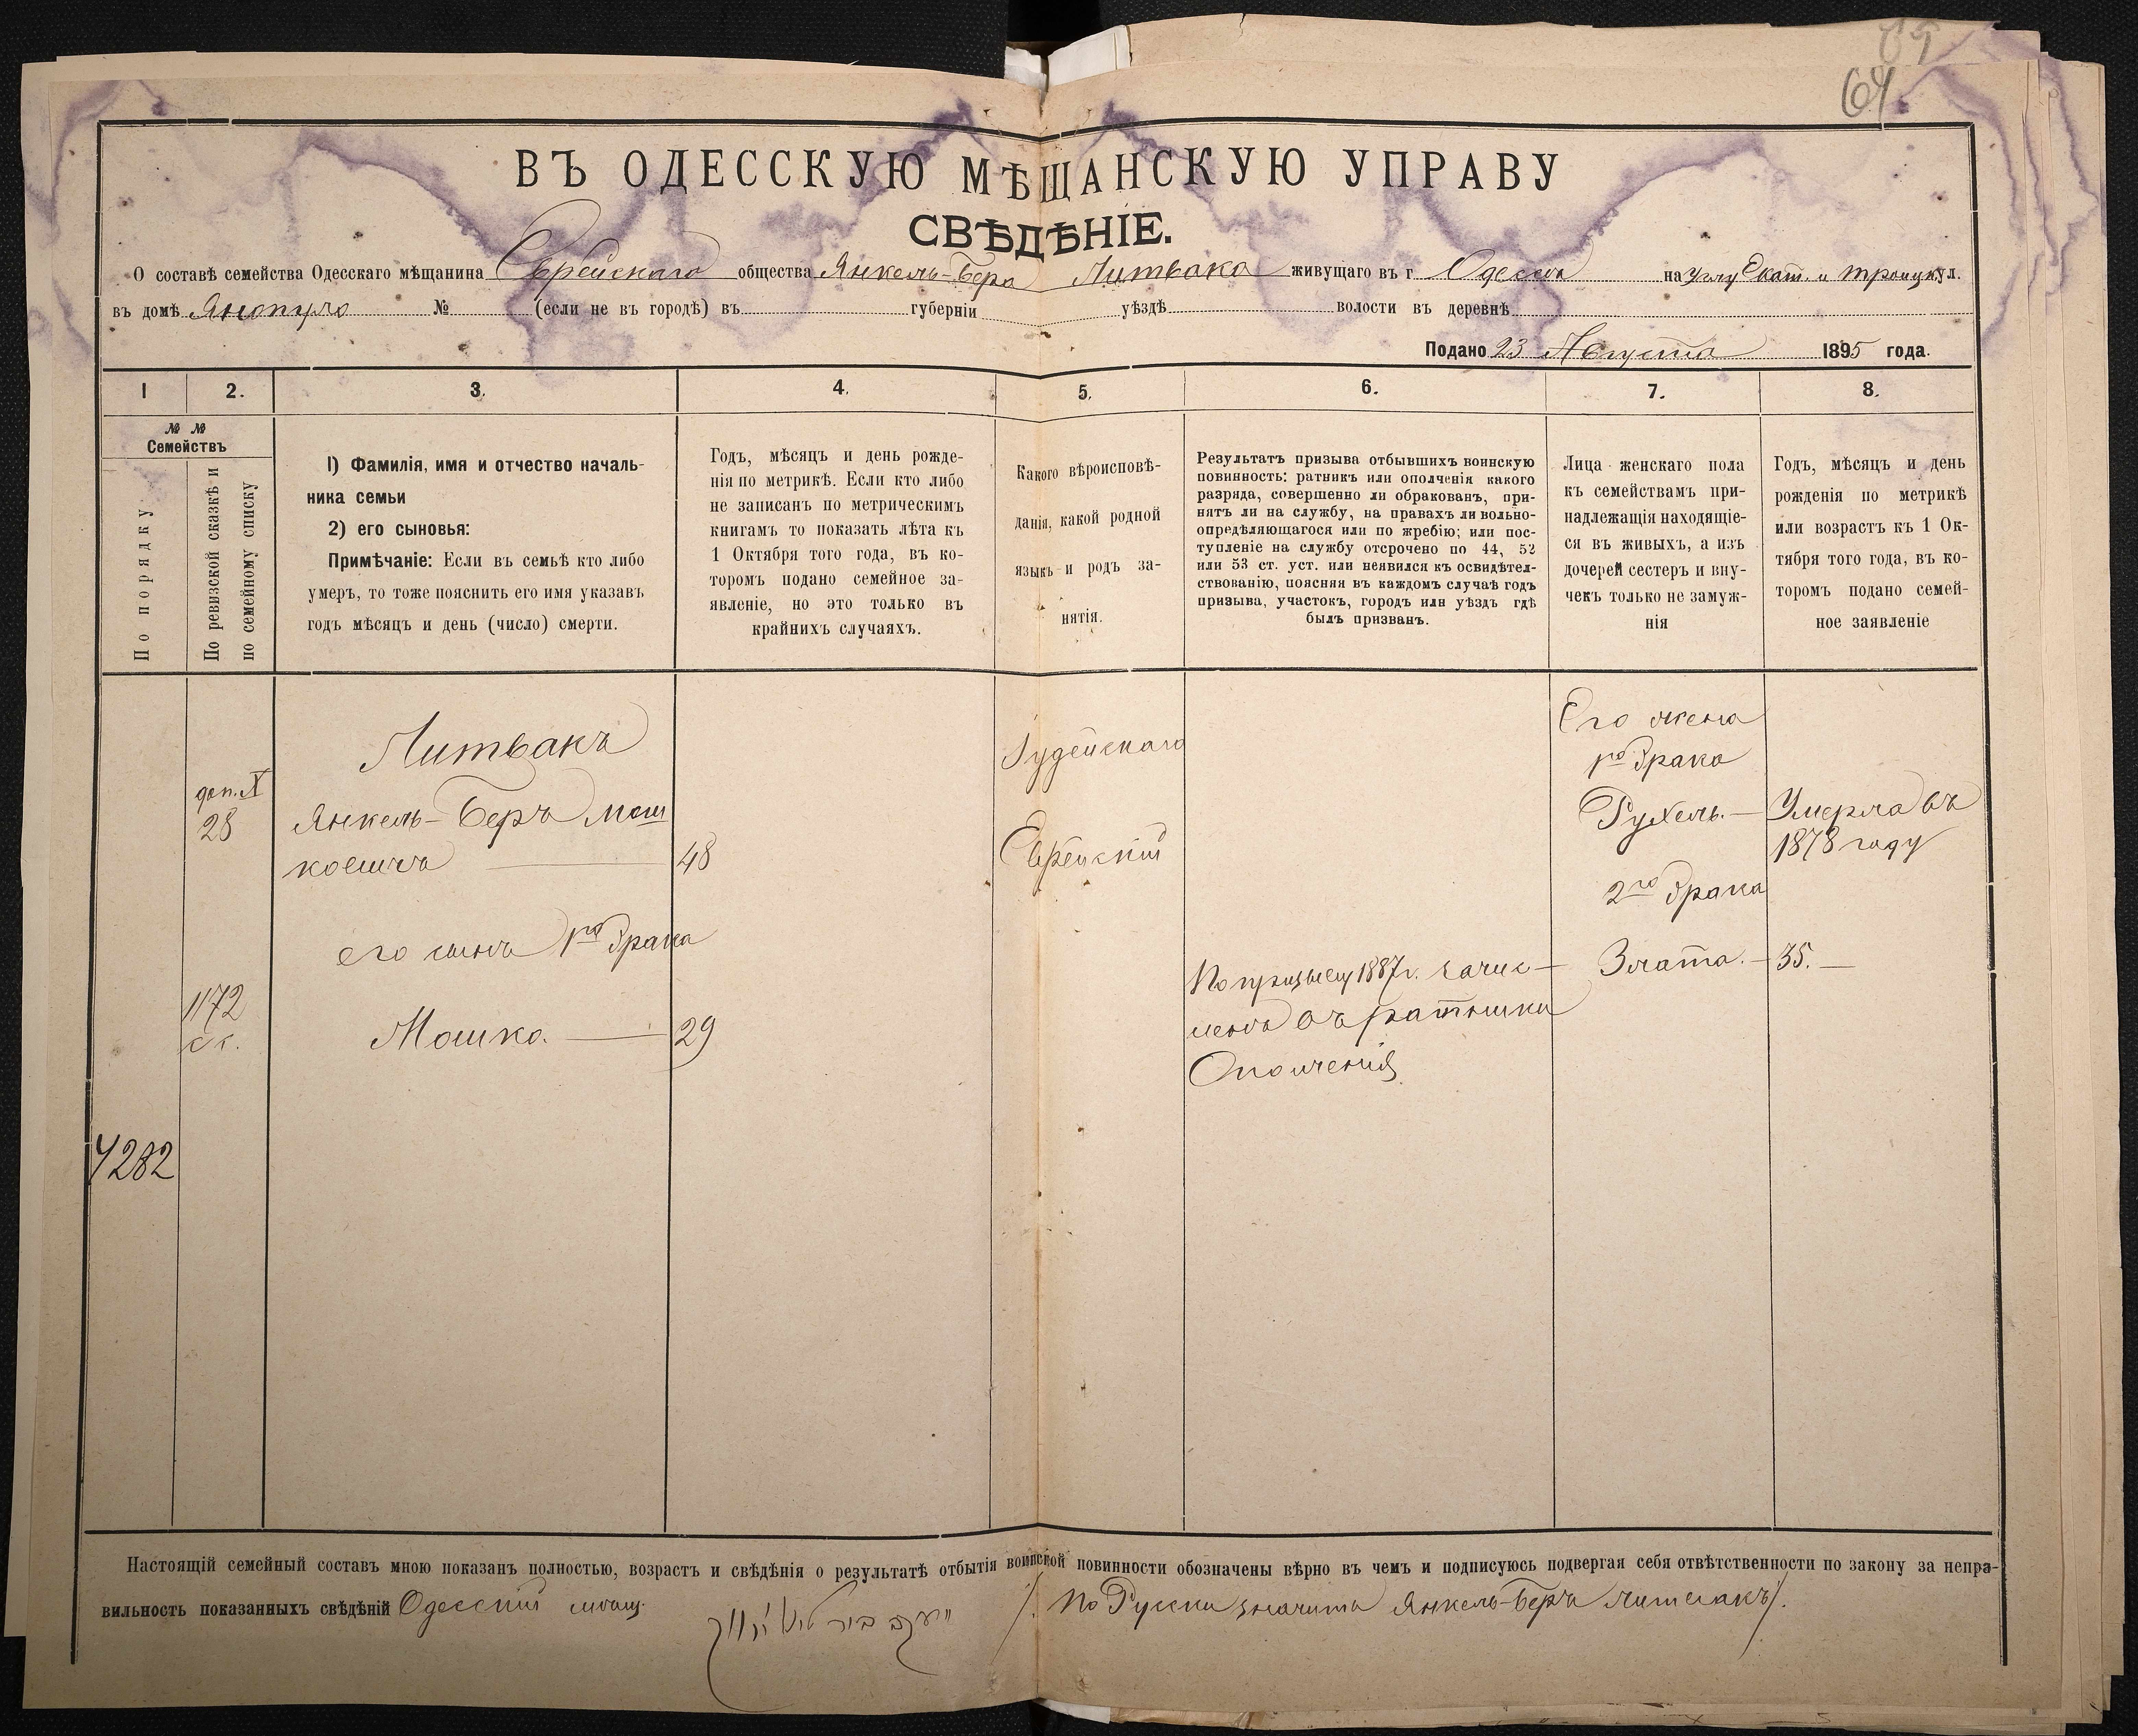 64
ВЪ ОДЕССКУЮ МѢЩАНСКУЮ УПРАВУ
СВѢДѢНІЕ.
О составѣ семейства Одесскаго мѣщанина Еврейскаго общества Янкель-Бера Литвака живущаго въ г. Одессѣ на углу Екат. и Троицк ул.
въ домѣ Янопуло № (если не въ городѣ) въ губерніи уѣздѣ волости въ деревнѣ
Подано 23 Августа 1895 года.
1 2. 3. 4. 5. 6. 7. 8.
№ №
Семействъ
По порядку
По ревизской сказкѣ и
по семейному списку
1) Фамилія, имя и отчество началь-
ника семьи
2) его сыновья:
Примѣчаніе: Если въ семьѣ кто либо
умеръ, то тоже пояснить его имя указавъ
годъ мѣсяцъ и день (число) смерти.
Годъ, мѣсяцъ и день рожде-
нія по метрикѣ. Если кто либо
не записанъ по метрическимъ
книгамъ то показать лѣта къ
1 Октября того года, въ ко-
торомъ подано семейное за-
явленіе, но это только въ
крайнихъ случаяхъ.
Какого вѣроисповѣ-
данія, какой родной
языкъ и родъ за-
нятія.
Результатъ призыва отбывшихъ воинскую
повинность: ратникъ или ополченія какого
разряда, совершенно ли обракованъ, при-
нятъ ли на службу, на правахъ ли вольно-
опредѣляющагося или по жребію; или пос-
тупленіе на службу отсрочено по 44, 52
или 53 ст. уст. или неявился къ освидѣтел-
ствованію, поясняя въ каждомъ случаѣ годъ
призыва, участокъ, городъ или уѣздъ гдѣ
былъ призванъ.
Лица женскаго пола
къ семействамъ при-
надлежащія находящіе-
ся въ живыхъ, а изъ
дочерей сестеръ и вну-
чекъ только не замуж-
нія
Годъ, мѣсяцъ и день
рожденія по метрикѣ
или возрастъ къ 1 Ок-
тября того года, въ ко-
торомъ подано семей-
ное заявленіе
доп. X
28
1172
4282
Литвакъ
Янкель-Беръ Мош
ковичъ — 48
его сынъ 1го брака
Мошко. — 29
Іудейскаго
Еврейскій
По призыву 1887 г. зачис-
ленъ въ ратники
Ополченія
Его жена
1го брака
Рухель. — Умерла въ
1878 году
2го брака
Злата. — 35. —
Настоящій семейный составъ мною показанъ полностью, возрастъ и свѣдѣнія о результатѣ отбытія воинской повинности обозначены вѣрно въ чемъ и подписуюсь подвергая себя отвѣтственности по закону за непра-
вильность показанныхъ свѣдѣній Одесскій мѣщ. /. По Русски значитъ Янкель-Беръ Литвакъ/.